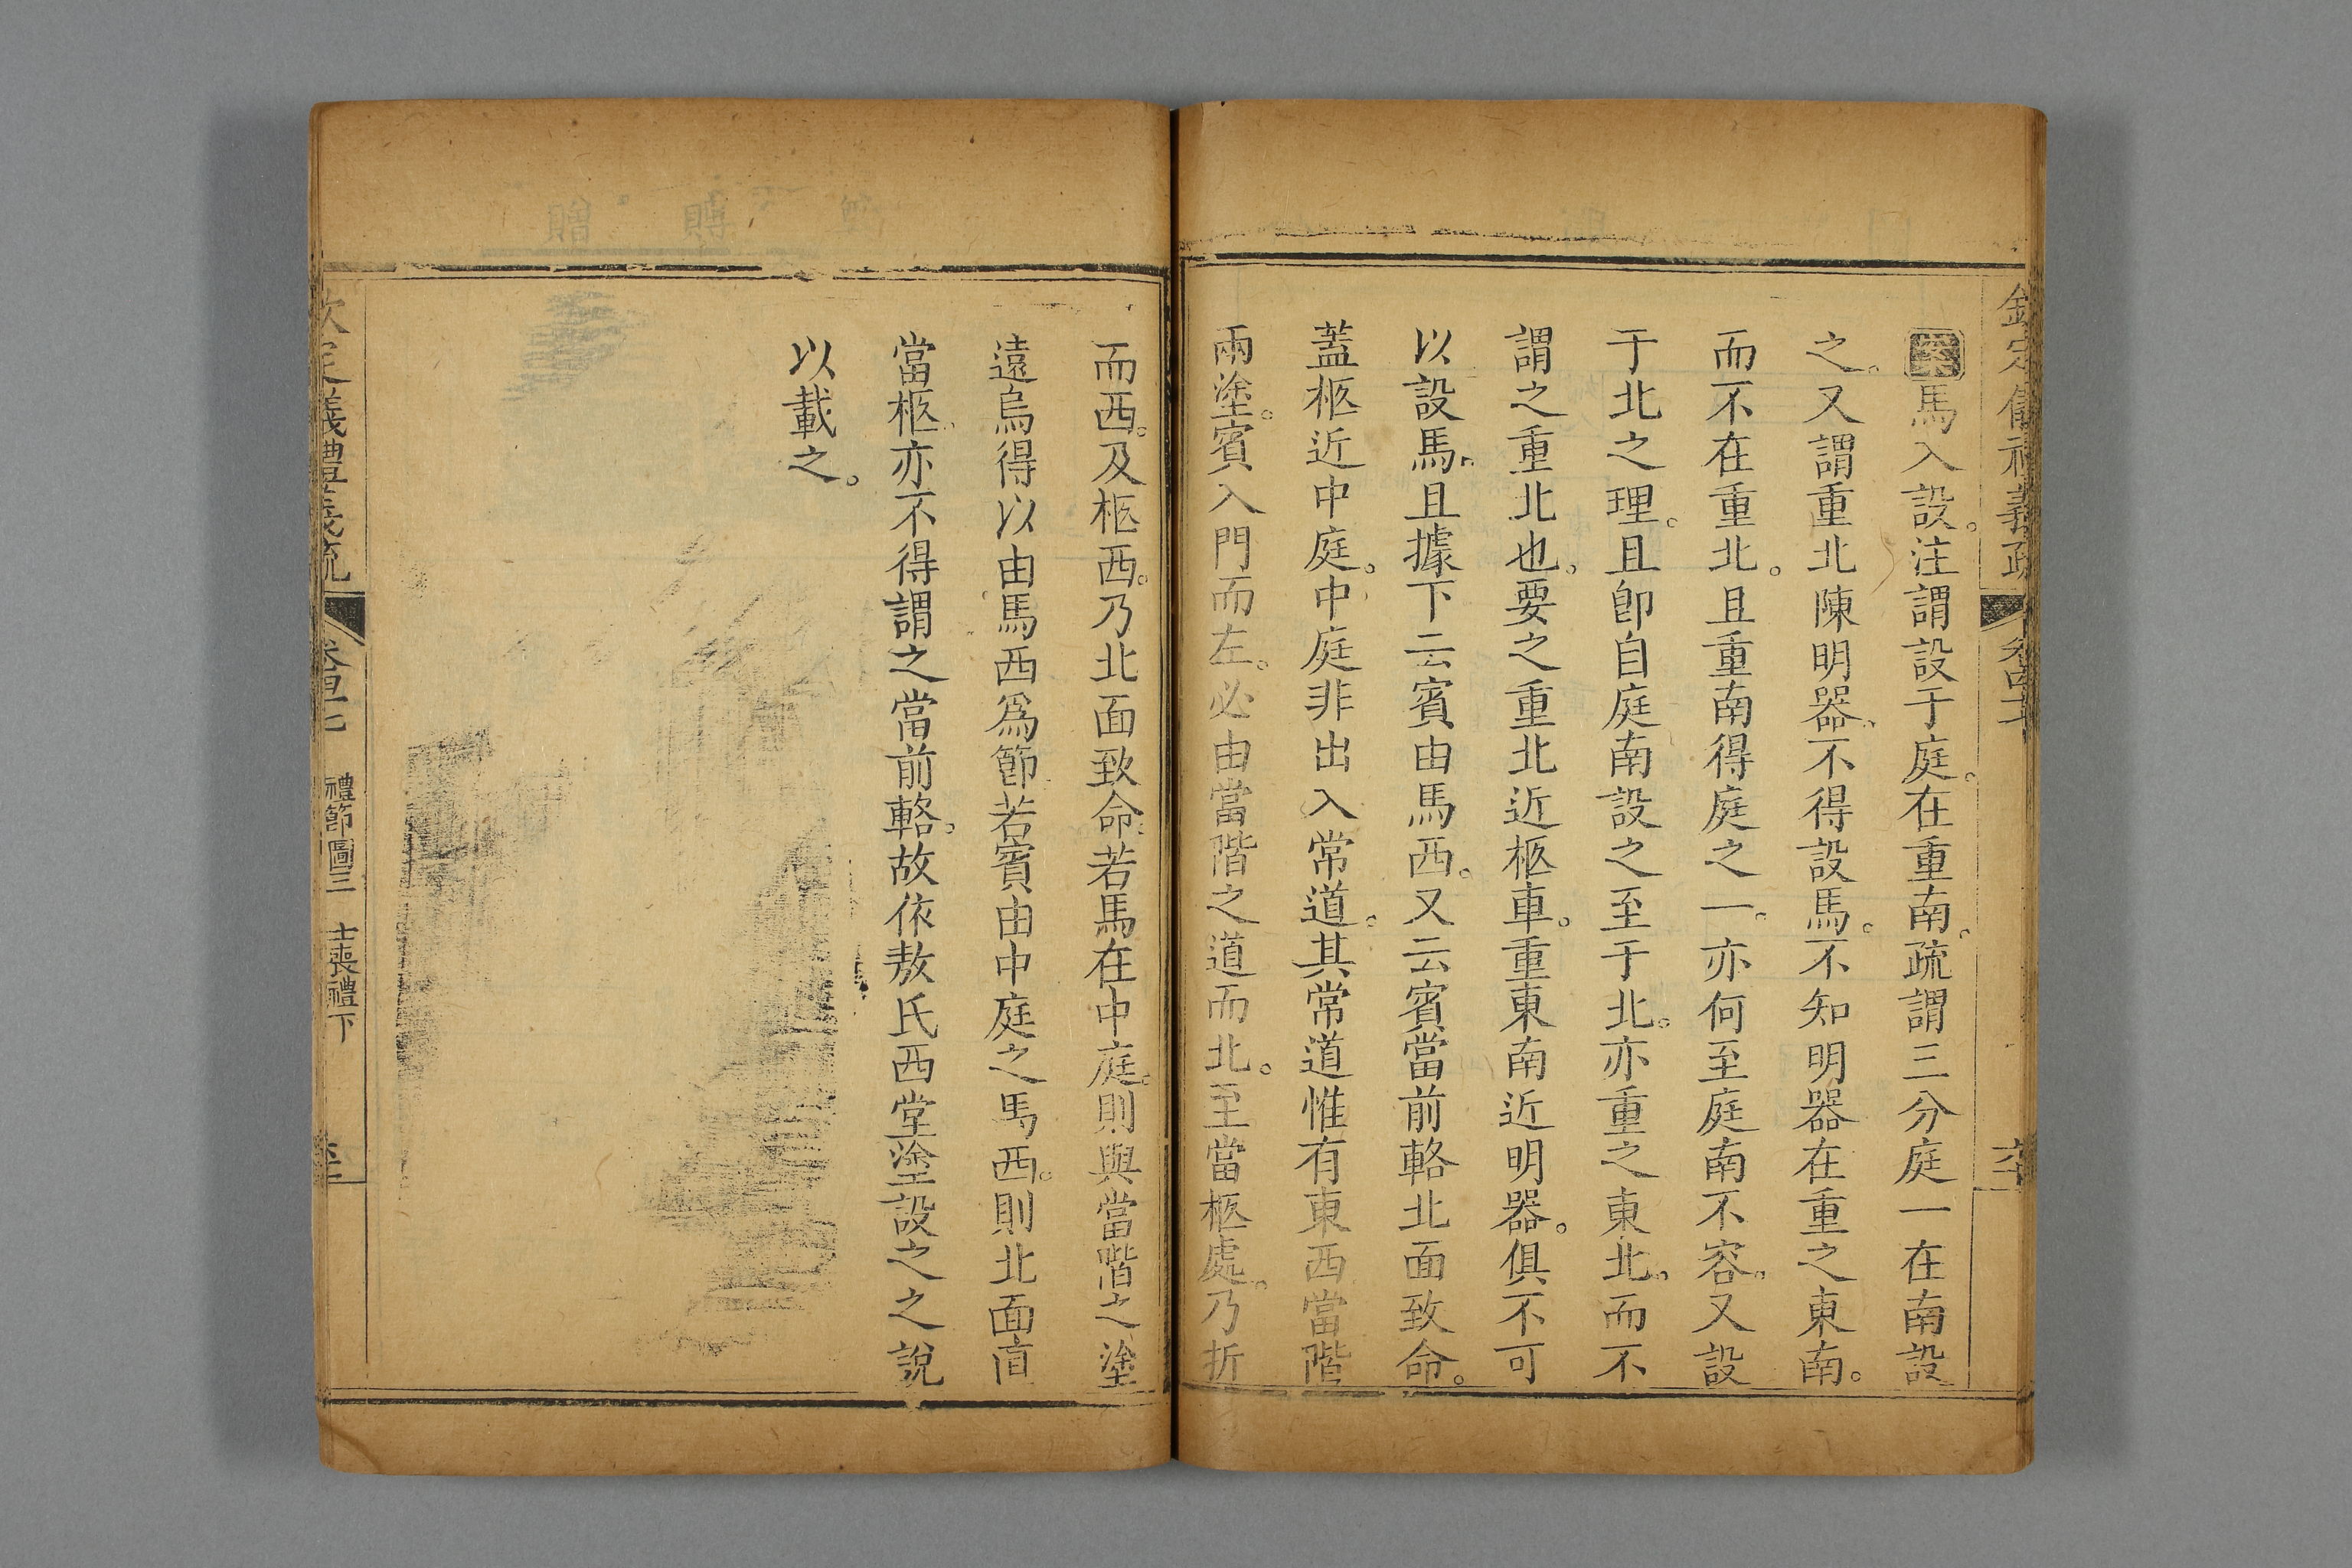 欽定儀禮義疏 卷四十
案馬入設。注謂設于庭。在重南。疏謂三分庭一在南設
之。又謂重北陳明器。不得設馬。不知明器在重之東南。
而不在重北。且重南得庭之一。亦何至庭南不容。又設
于北之理。且卽自庭南設之至于北。亦重之東北。而不
謂之重北也。要之重北近柩車。重東南近明器。俱不可
以設馬。且據下云賓由馬西。又云賓當前輅北面致命。
蓋柩近中庭。中庭非出入常道。其常道惟有東西當階
兩塗。賓入門而左。必由當階之道而北。至當柩處。乃折
而西。及柩西。乃北面致命。若馬在中庭。則與當階之塗
遠烏得以由馬西爲節。若賓由中庭之馬西。則北面直
當柩。亦不得謂之當前輅。故依敖氏西堂塗設之之說
以載之。
欽定義禮義疏 禮節圖三 士喪禮下